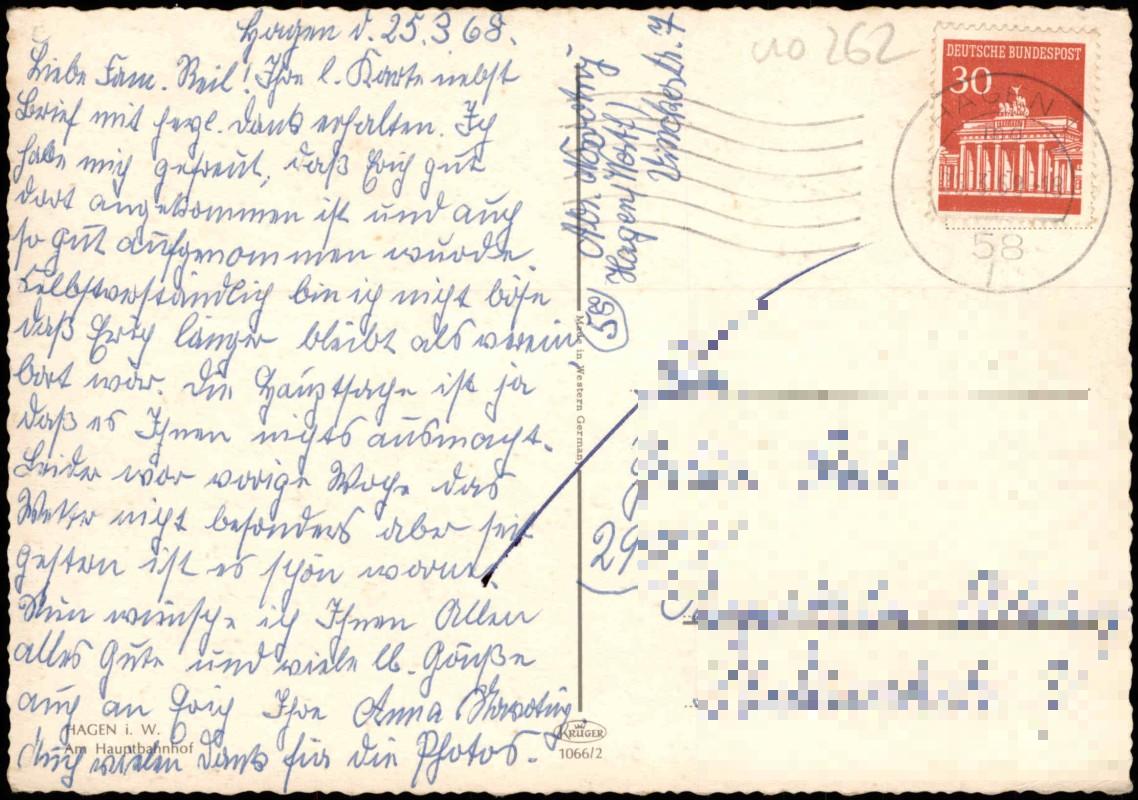 Hagen d. 25.3.68.
Liebe Fam. Reil! Ihre l. Karte nebst
Brief mit herzl. Dank erhalten. Ich
habe mich gefreut, daß Erich gut
dort angekommen ist und auch
so gut aufgenommen wurde.
Selbstverständlich bin ich nicht böse
daß Erich länger bleibt als verein-
bart war. Die Hauptsache ist ja
daß es Ihnen nichts ausmacht.
Leider war vorige Woche das
Wetter nicht besonders aber seit
gestern ist es schön warm.
Nun wünsche ich Ihnen Allen
alles Gute und viele lb. Grüße
auch an Erich Ihre Anna
Auch vielen Dank für die Photos.
HAGEN i. W.
Am Hauptbahnhof
Abs.
(58) Hagen (Westf)
Made in Western Germany
KRÜGER
1066/2
no 262
DEUTSCHE BUNDESPOST
30
HAGEN
58
1
(29